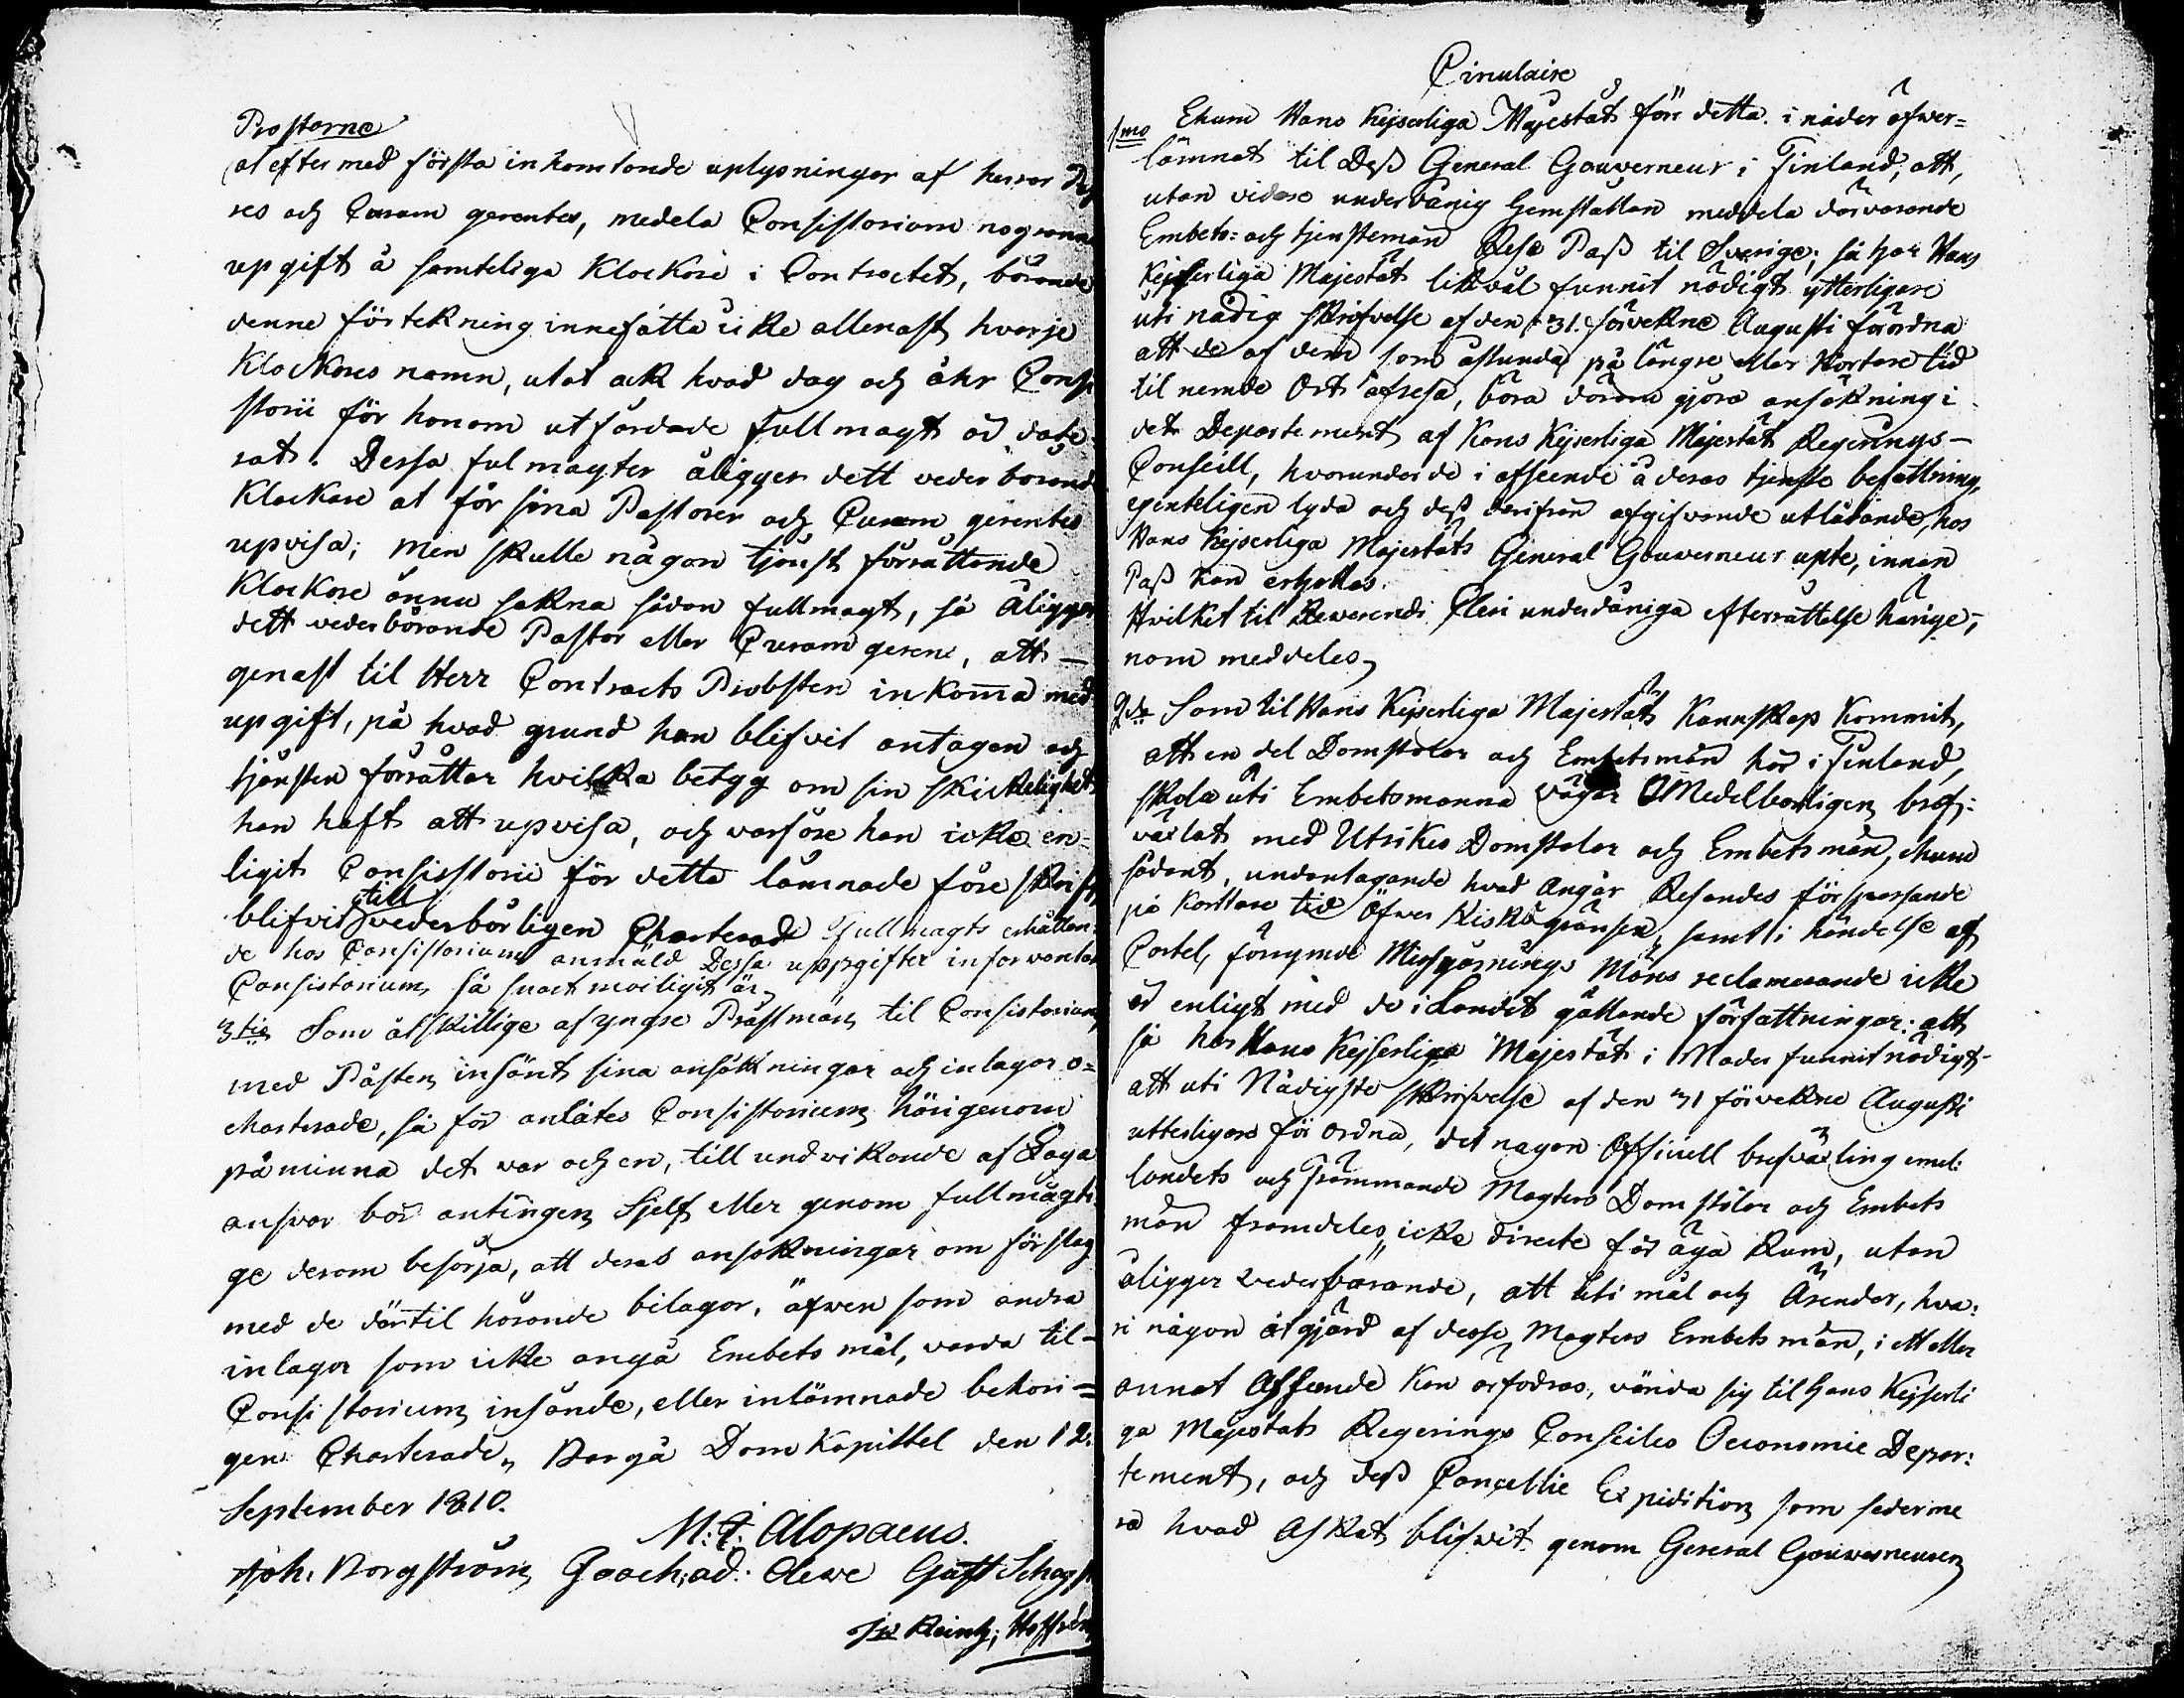 Prostarne
at efter med första inkomtande uplysningar af herrar
res och Curam gerentes, medela Consistorium nogranna
upgift å samteliga Klockare i Contractet, börande
denne förtekning innefatta icke allenast hvarje
Klockares namn, utat ack hvad dag och åhr Consi
storii för honom utfärdade fullmagt är date-
rat. Dessa fulmagter åligger dett vederbörand
Klockare at för sina Pastorer och Curam gerentes
upvisa; men skulle någon tjenst förrättande
Klockare ännu sakna sådan fullmagt, så åligger
dett vederbörande Pastor eller Curam gerens, att
genast til Herr Contracts Probsten inkomma med
upgift, på hvad grund han blifvit antagen och
tjensten förrättar hvilka betyg om sin skickelighet
han haft att upvisa, och warföre han icke en-
ligit Consisstorii för detta lämnade föreskrift
blifvit till vederbörligen Charterad fullmagts erhållan-
de hos Consistorium anmäld Dessa uppgifter inforvantar
Consistorium så snart möiligit är,
3tie Som åtskillige af yngre Prästmän til Consistorium
med Påsten insänt sina ansökningar och inlagor o-
charterade, så för anlåtes Consistorium härigenom
påminna det var och en, till undvikande af Laga
answar bör antingen Sjelf eller genom fullmägti-
ge derom besörja, att deras ansökningar om förslag
med de därtil hörande bilagor, äfwen som andra
inlagor som icke angå Embets mål, varda til-
Consistorium insände, eller inlämnade behöri-
gen Charterade, Borgå Dom Kapittel den 12.
September 1810.
M: J: Alopaeus.
Joh. Borgström, Joach: ad: Cleve Gust Schog
Reinh; Hoffrén
Cirulaire
1mo Ehuru Hans Kejserliga Majestät före detta i nåder öfwer-
lämnat til Deß General Gouverneur i Finland, att,
utan vidare underdånig hemställan meddela därvarande
Embets- och tjenstemän Rese Paß til Sverige; så har Hans
Kejserliga Majestät likväl funnit nödigt ytterligare
uti nådig skrifvelse af den 31. förvekne Augusti förordna
att de af dem som åstunda på längre eller kortare tid
til nemde Ort afresa, böra därom gjöra ansökning i
det Departement af Hans Kejserliga Majestäts Regerings-
Conseill, hvarunder de i afseende å deras tjenste befattning,
egenteligen lyda och deß därifrån afgifvande utlåtande, hos
Hans Kejserliga Majestäts General Gouverneur upte, innan
Paß kan erhållas.
Hvilket til Reverendi Cleri underdåniga efterrättelse härige-
nom meddeles,
2do Som til Hans Kejserliga Majestäts Kännskap kommit,
att en del Domstolar och Embetsmän här i Finland,
skola uti Embetsmanna vägar OMedelbarligen bref-
växlat med Utrikes Domstolar och Embetsmän, ehuru
sådant, undantagande hvad Angår Resandes förpassande
på Kortare tid Öfwer Riksgränsen, samt i händelse af
Cartel, förrymde Missgärnings Mäns reclamerande icke
är enligt med de i Landet gällande författningar: att
så har Hans Kejserliga Majestät i Nåder funnit nödigt
att uti Nådigste skrifvelse af den 31 förvekne Augusti
utterligare för ordna, det nagon Officiell brefväxling emel:
landets och Främmande Magters Domstolar och Embets
män framdeles, icke directe får äga Rum, utan
åligger vederbörande, att uti mål och Ärender, hva-
ri någon åtgjärd af desse Magters Embetsmän, i ett eller
annat Afseende kan ärfodras, vända sig til Hans Kejserli
ga Majestäts Regerings Conseiles Oeconomie Depar-
tement, och deß Cancellie Expedition som federme
ra hvad Askat blifwit genom General Gouverneuren